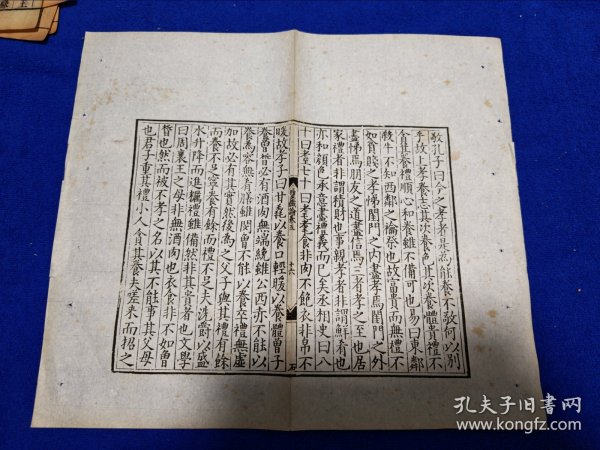 敬孔子曰今之孝者是為能養不敬何以別
乎故上孝養志其次養色其次養體貴禮不
貪其養禮順心和養雖不備可也易曰東鄰
殺牛不如西鄰之禴祭也故富貴而無禮不
如貧賤之孝悌閨門之內盡孝焉閨門之外
盡悌焉朋友之道盡信焉三者孝之至也居
家禮者非謂積財也事親孝者非謂鮮肴也
亦和顏色承意盡禮義而已矣丞相史曰八
十曰耋七十曰耄耄食非肉不飽衣非帛不
十六
石
暖故孝子曰甘毳以養口輕暖以養體曾子
養曾皙必有酒肉無端絻雖公西赤不能以
養為容無肴膳雖閔曾不能以養卒禮無虛
加故必有其實然後為之父子與其禮有餘
而養不足寧養有餘而禮不足夫洗爵以盛
水升降而進糲禮雖備然非其貴者也文學
曰周襄王之母非無酒肉也衣食非不如曾
皙也然而被不孝之名以其不能事其父母
也君子重其禮小人貪其養夫嗟來而招之
孔夫子旧书网
www.kongfz.com